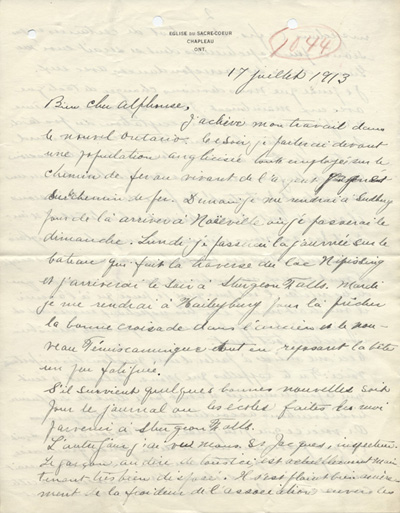 EGLISE DU SACRE-COEUR
CHAPLEAU
ONT.
1044
17 juillet 1913
Bien cher Alphonse,
J'achève mon travail dans
le nouvel Ontario. Ce soir, je parlerai devant
une population anglicisée tout employé sur le
chemin de fer ou vivant de l'argent
du chemin de fer. Demain je me rendrai à Sudbury
pour de là arriver à Noëlville où je passerai le
dimanche. Lundi je passerai la journée sur le
bateau qui fait la traverse du lac Nipissing
et j'arriverai le soir à Sturgeon Falls. Mardi
je me rendrai à Haileybury pour là prêcher
la bonne croisade dans l'ancien et le nou-
veau Témiscamingue tout en reposant la tête
un peu fatiguée.
S'il survient quelques bonnes nouvelles soit
pour le journal ou les écoles faites les moi
parvenir à Sturgeon Falls.
L'autre jour j'ai vu mons. St Jacques, inspecteur.
Le garçon au dire de
tenant très bien disposé. Il s'est plaint bien amère-
ment de la froideur de l'association envers les